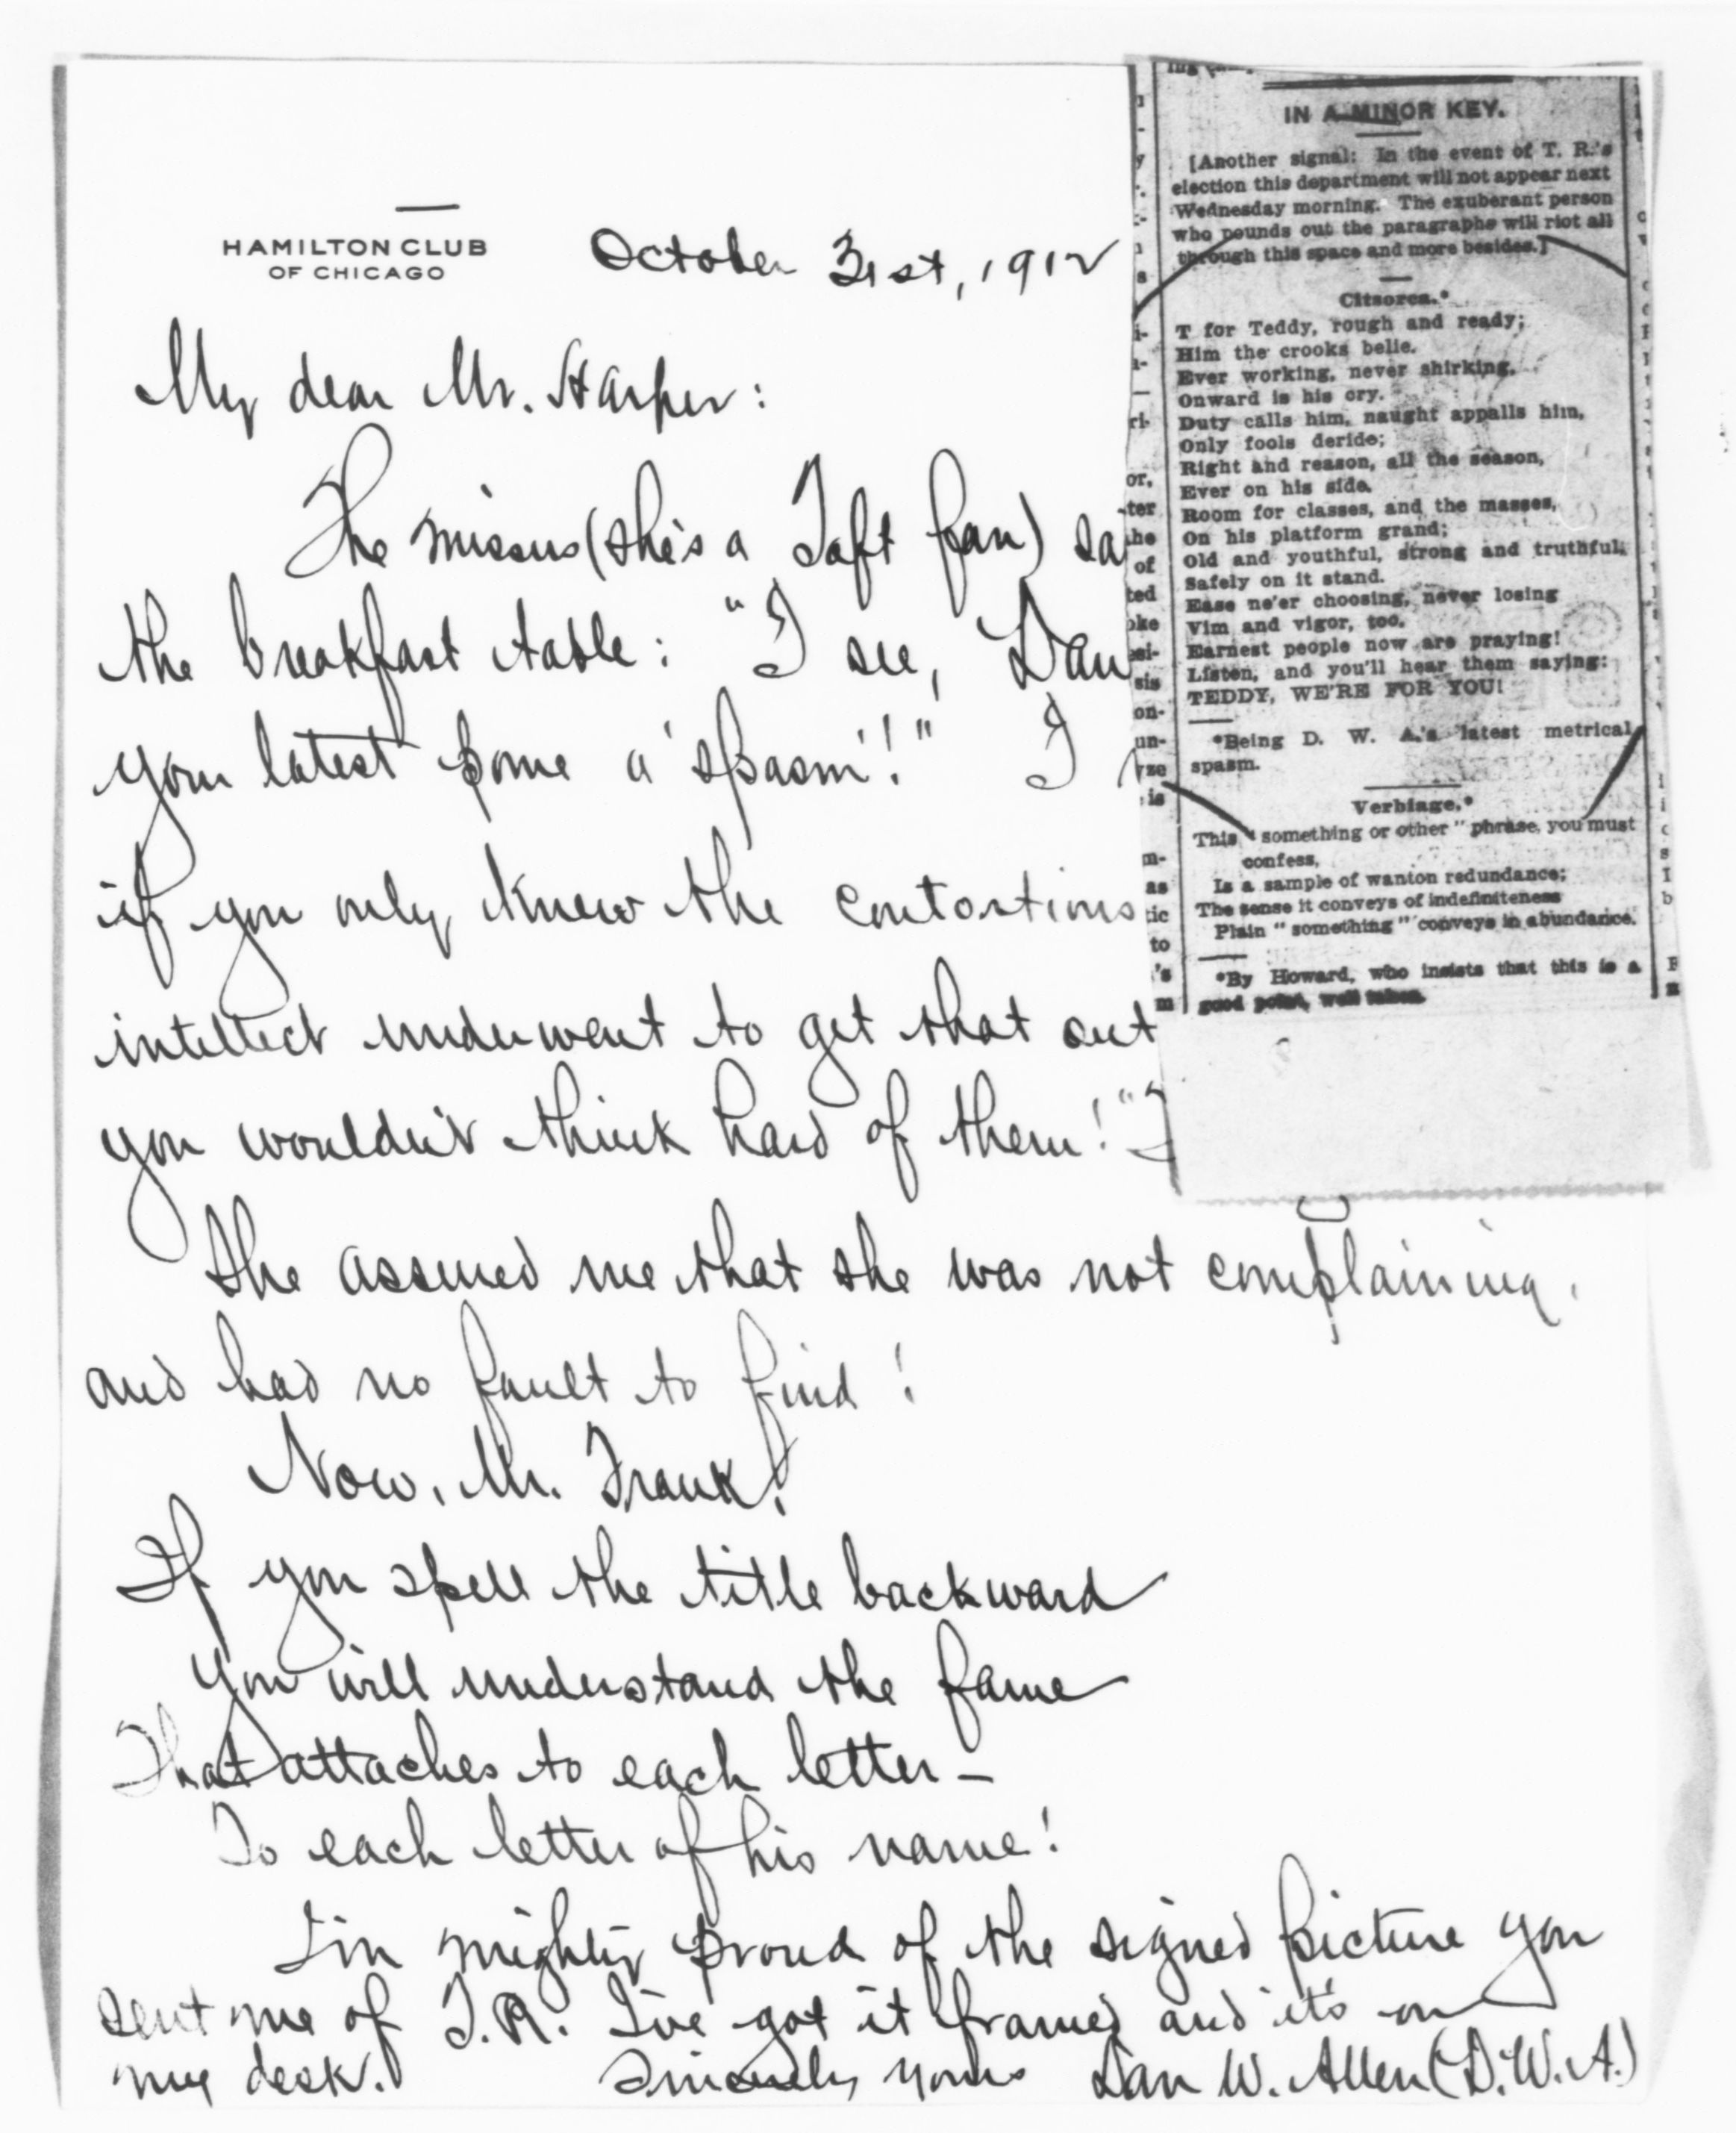 HAMILTON CLUB
OF CHICAGO
October 31st, 1912
My dear Mr. Harper:
The missus (she's a Taft fan) sa
the breakfast table: "I see, Dan
your latest pome a 'spasm'!" I
if you only knew the contortions
intellect underwent to get that out
you wouldn't think hard of them!"
She assured me that she was not complaining,
and had no fault to find!
Now, Mr. Frank!
If you spell the title backward
You will understand the fame
That attaches to each letter –
To each letter of his name!
I'm mighty proud of the signed picture you
sent me of T.R. I've got it framed and it's on
my desk. Sincerely yours Dan W. Allen (D.W.A.)
IN A MINOR KEY.
[Another signal: In the event of T. R.'s
election this department will not appear next
Wednesday morning. The exuberant person
who pounds out the paragraphs will riot all
through this space and more besides.]
Citsorca.*
T for Teddy, rough and ready;
Him the crooks belie.
Ever working, never shirking,
Onward is his cry.
Duty calls him, naught appalls him,
Only fools deride;
Right and reason, all the season,
Ever on his side.
Room for classes, and the masses,
On his platform grand;
Old and youthful, strong and truthful,
Safely on it stand.
Ease ne'er choosing, never losing
Vim and vigor, too.
Earnest people now are praying!
Listen, and you'll hear them saying:
TEDDY, WE'RE FOR YOU!
*Being D. W. A.'s latest metrical
spasm.
Verbiage.*
This "something or other" phrase, you must
confess,
Is a sample of wanton redundance;
The sense it conveys of indefiniteness
Plain "something" conveys in abundance.
*By Howard, who insists that this is a
good point, well taken.